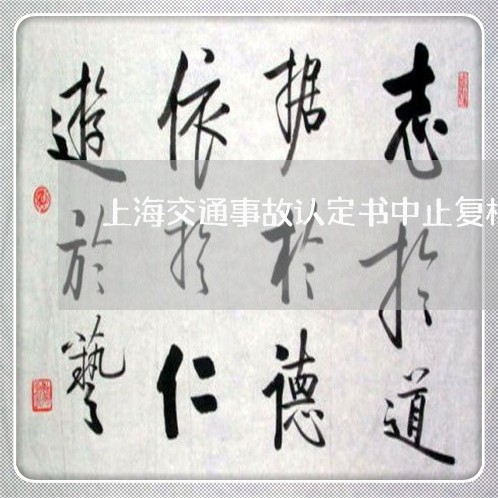 志於道
据於德
依於仁
遊於藝
上海交通事故认定书中止复